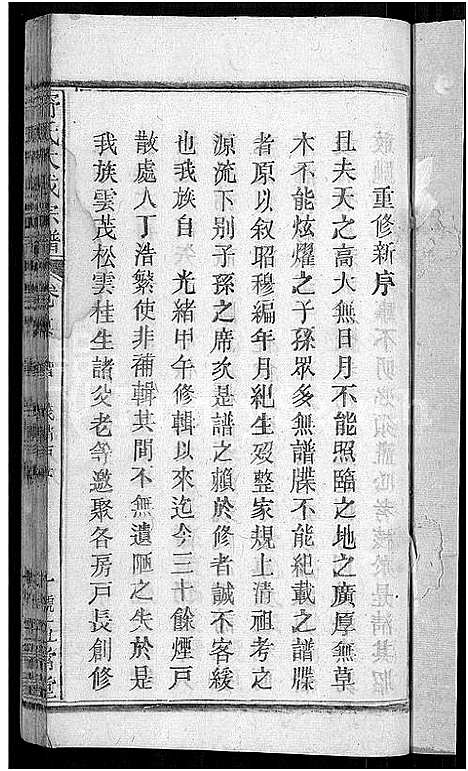 重修新序
且夫天之高大無日月不能照臨之地之廣厚無草
木不能炫燿之子孫眾多無譜牒不能紀載之譜牒
者原以叙昭穆編年月紀生殁整家規上清祖考之
源流下別子孫之席次是譜之賴於修者誠不容緩
也我族自 光緒甲午修輯以來迄今三十餘煙戸
散處人丁浩繁使非補輯其間不無遺陋之失於是
我族雲茂松雲桂生諸父老等邀聚各房戸長創修
氏大成宗譜 卷